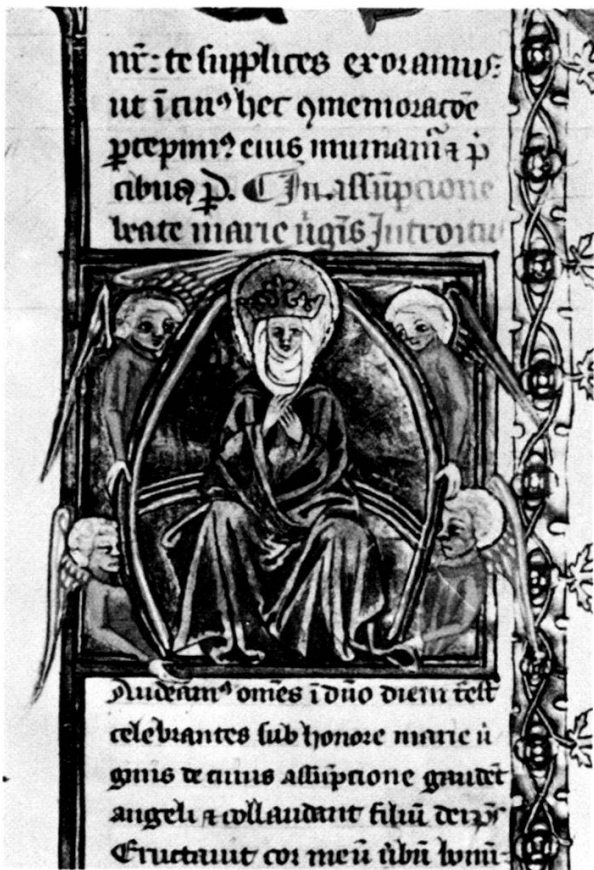 nr̄: te supplices exoramus:
ut ī cuiꝰ hec ꝯmemoracōe
ꝑcepimꝰ eius muniam̄ ⁊ p̄
cibus ꝑ. ¶ In assūpcione
beate marie ūgīs Introitus
Audeamꝰ oms̄ ī dn̄o diem fest̄
celebrantes sub honore marie ū
ginis de cuius assūpcione gaudēt
angeli ⁊ collaudant filiū dei ps̄
Eructauit cor meū ūbū bonū: